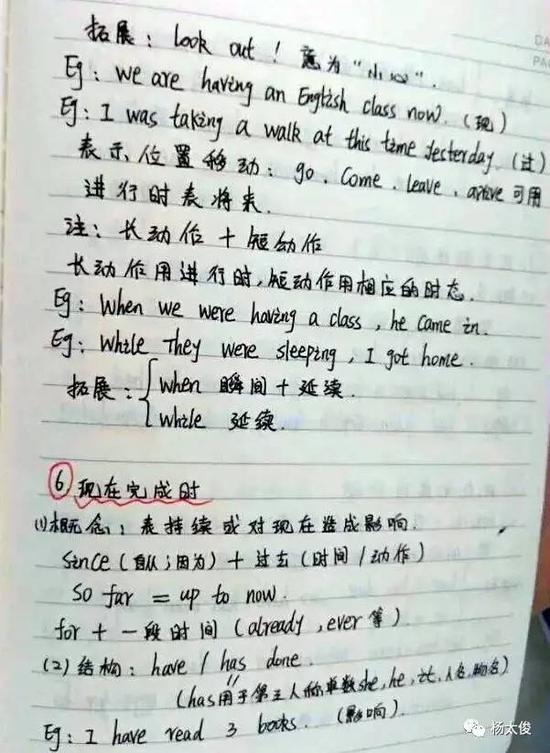 拓展：look out！意为“小心”.
Eg：we are having an English class now.（现）
Eg：I was taking a walk at this time yesterday.（过）
表示位置移动：go、come、leave、arrive可用
进行时表将来.
注：长动作＋短动作
长动作用进行时,短动作用相应的时态.
Eg：When we were having a class, he came in.
Eg：While They were sleeping, I got home.
拓展：{ when 瞬间＋延续.
while 延续.
⑥现在完成时
(1)概念：表持续或对现在造成影响.
since（自从；因为）＋过去（时间/动作）
So far = up to now.
for＋一段时间（already, ever等）.
(2)结构：have / has done.
（has用于第三人称单数she, he, it, 人名,物名）
Eg：I have read 3 books.（影响）.
杨太俊
DA
PA